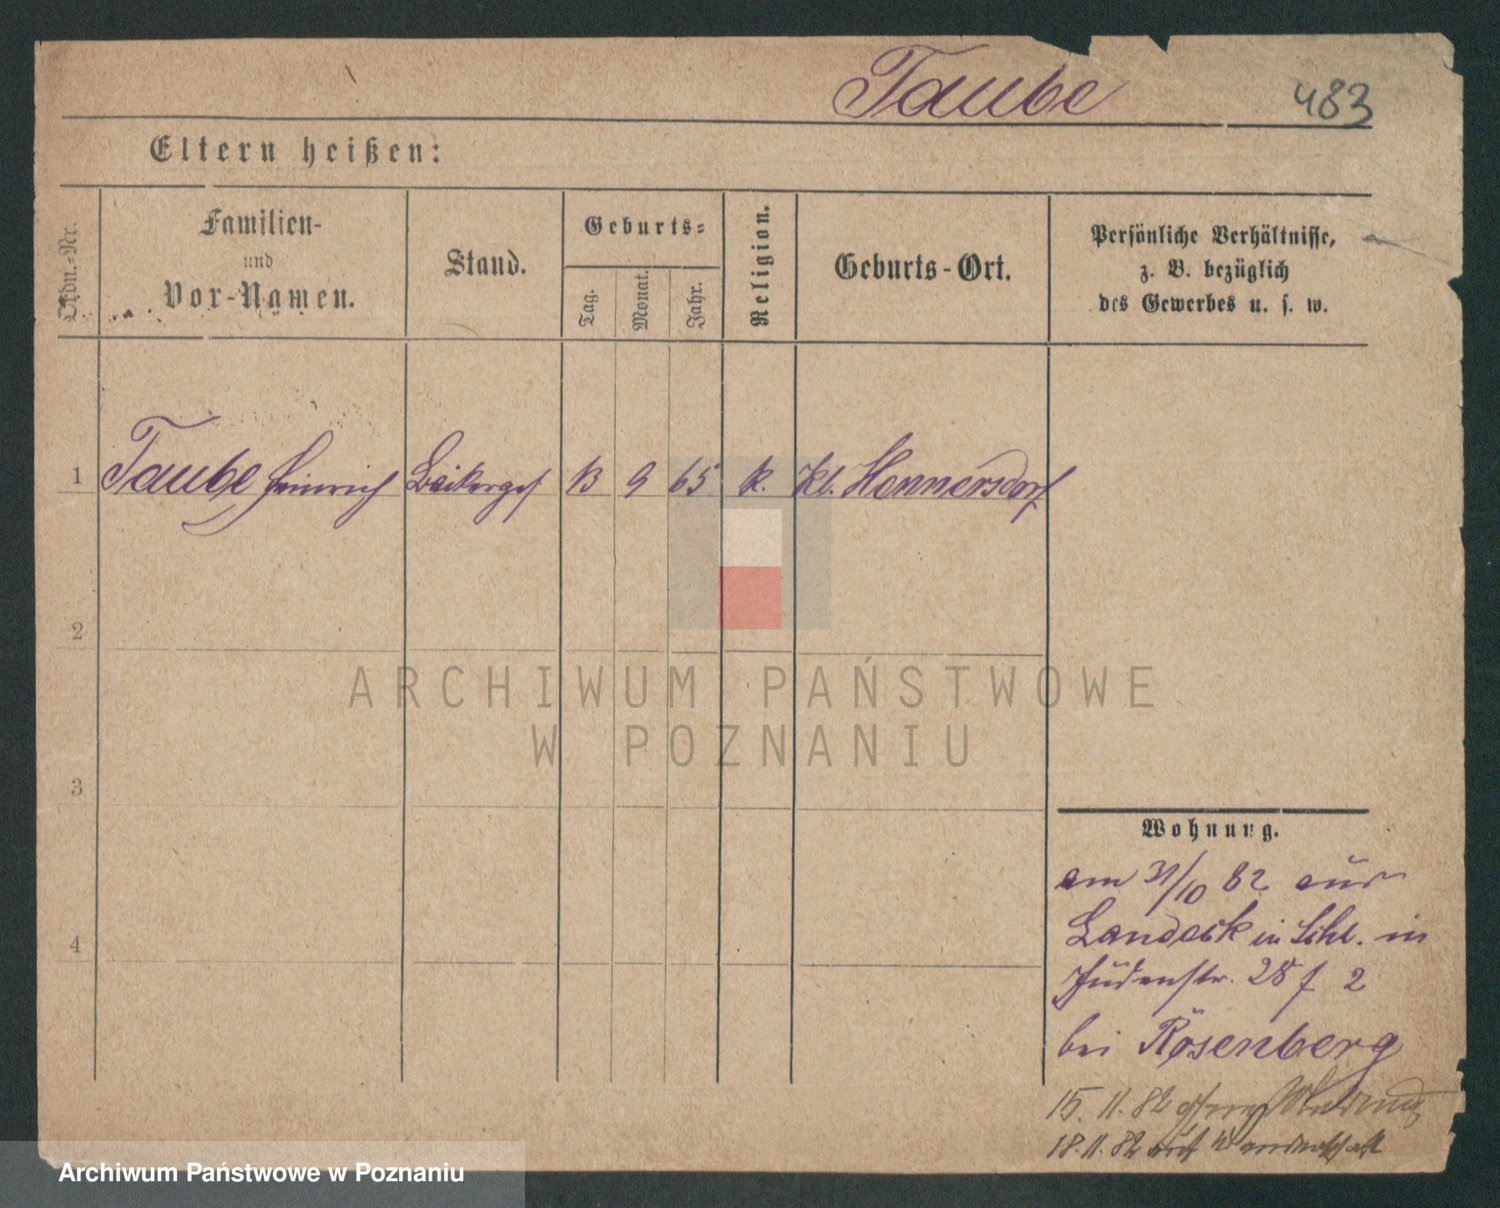 Taube 483
Eltern heißen:
Ordn.-Nr.
Familien-
und
Vor-Namen.
Stand.
Geburts-
Tag.
Monat.
Jahr.
Religion.
Geburts-Ort.
Persönliche Verhältnisse,
z. B. bezüglich
des Gewerbes u. s. w.
1 Taube Heinrich Bäckerges 13 9 65 k. Kl. Hennersdorf
2
3
4
Wohnung.
am 31/10 82 aus
Landeck in Schl. in
Judenstr. 28 f 2
bei Rosenberg
15. 11. 82
18. 11. 82 auf Wanderschaft
ARCHIWUM PAŃSTWOWE
W POZNANIU
Archiwum Państwowe w Poznaniu